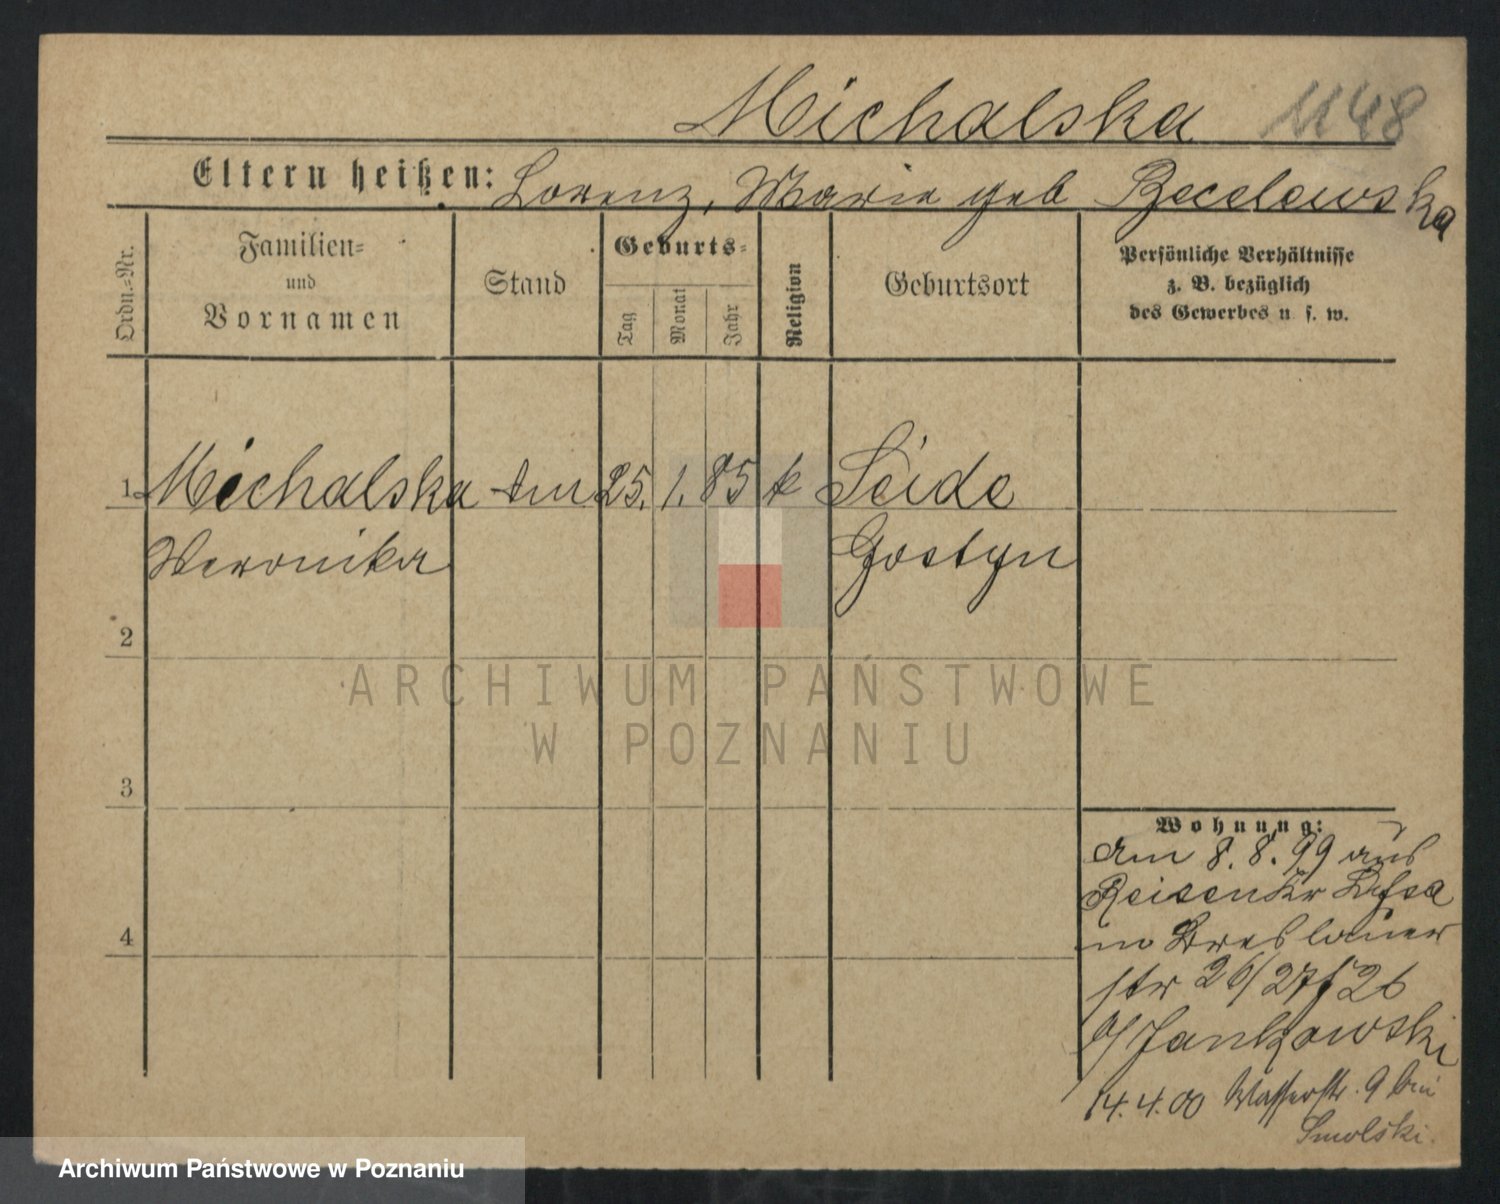 Michalska 1148
Eltern heißen: Lorenz, Marie geb Becelewska
Ordn.-Nr.
Familien-
und
Vornamen
Stand
Geburts-
Tag
Monat
Jahr
Religion
Geburtsort
Persönliche Verhältnisse
z. B. bezüglich
des Gewerbes u. s. w.
1 Michalska 25. 1. 85 k Seide
Weronika Gostyn
2
3
4
ARCHIWUM PAŃSTWOWE
W POZNANIU
Wohnung:
am 8. 8. 99 aus
Reisen Kr Lissa
in Breslauer
str 26/27
b/ Jankowski
14. 4. 00 Wasserstr. 9 bei
Smolski.
Archiwum Państwowe w Poznaniu